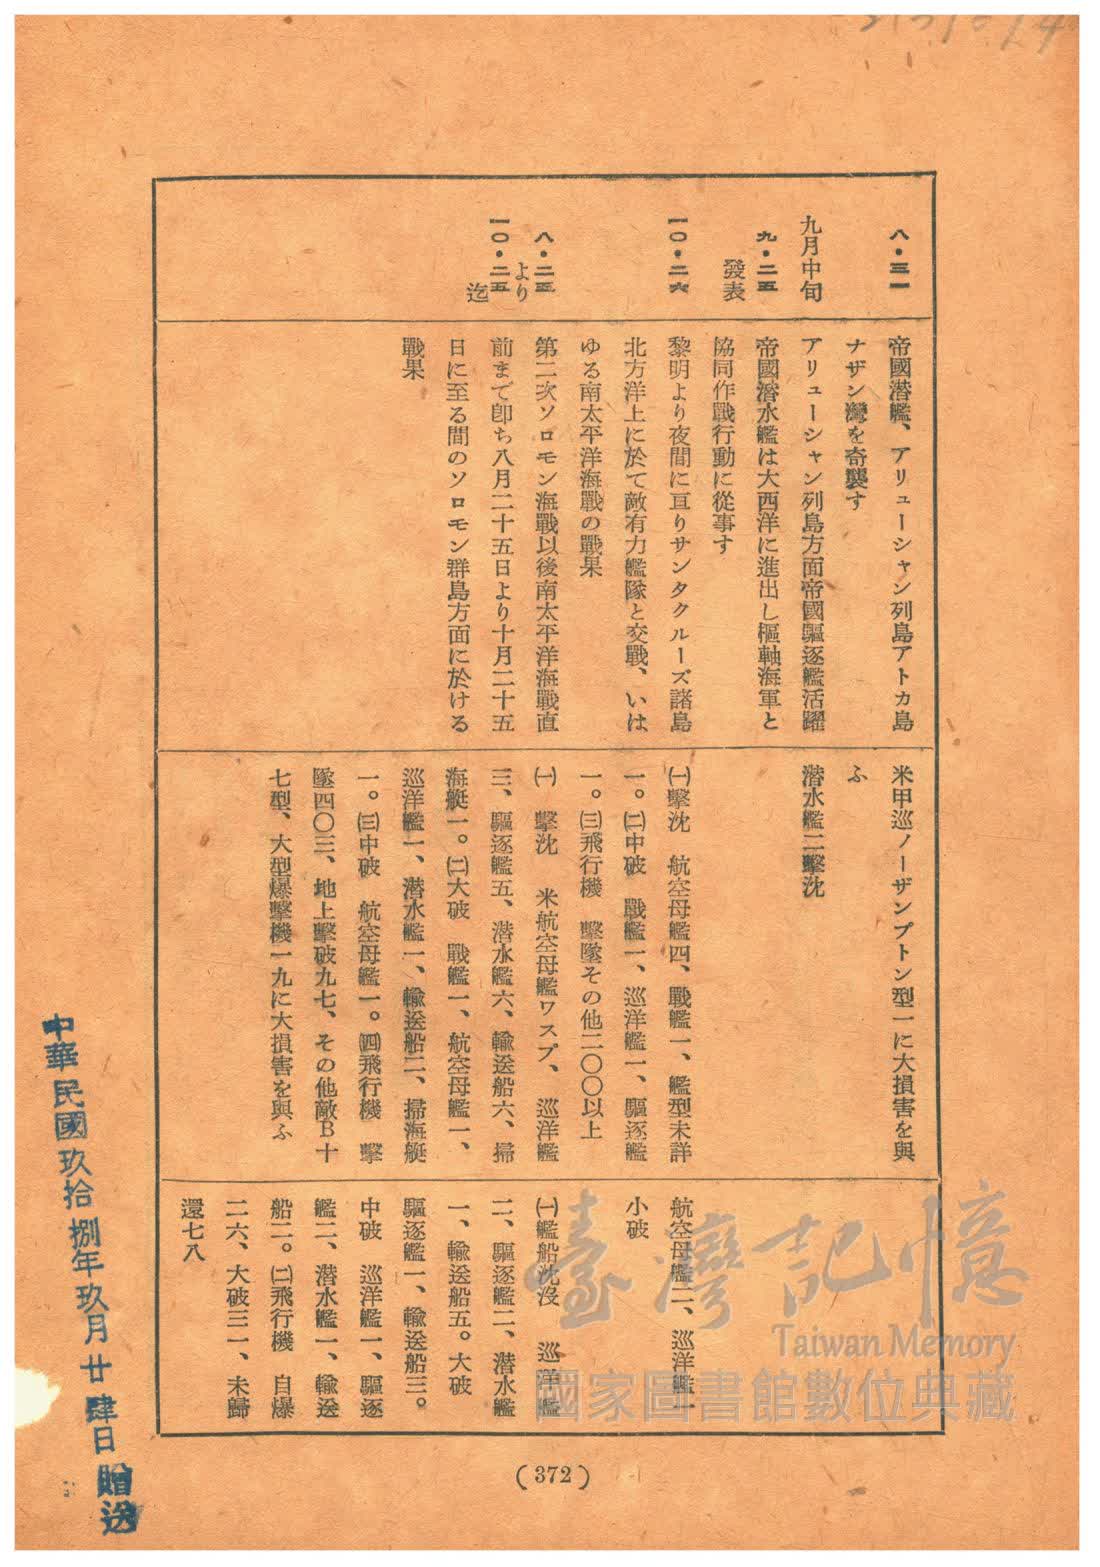 八・三一
九月中旬
九・二五
發表
一〇・二六
八・二五
より
一〇・二五
迄
帝國潜艦、アリューシャン列島アトカ島
ナザン灣を奇襲す
アリューシャン列島方面帝國驅逐艦活躍
帝國潜水艦は大西洋に進出し樞軸海軍と
協同作戰行動に從事す
黎明より夜間に亘りサンタクルーズ諸島
北方洋上に於て敵有力艦隊と交戰、いは
ゆる南太平洋海戰の戰果
第二次ソロモン海戰以後南太平洋海戰直
前まで卽ち八月二十五日より十月二十五
日に至る間のソロモン群島方面に於ける
戰果
米甲巡ノーザンプトン型一に大損害を與
ふ
潜水艦二擊沈
㈠擊沈　航空母艦四、戰艦一、艦型未詳
一。㈡中破　戰艦一、巡洋艦一、驅逐艦
一。㈢飛行機　擊墜その他二〇〇以上
㈠　擊沈　米航空母艦ワスプ、巡洋艦
三、驅逐艦五、潜水艦六、輸送船六、掃
海艇一。㈡大破　戰艦一、航空母艦一、
巡洋艦一、潜水艦一、輸送船二、掃海艇
一。㈢中破　航空母艦一。㈣飛行機　擊
墜四〇三、地上擊破九七、その他敵B十
七型、大型爆擊機一九に大損害を與ふ
航空母艦二、巡洋艦一
小破
㈠艦船沈沒　巡洋艦
二、驅逐艦二、潜水艦
一、輸送船五。大破
驅逐艦一、輸送船三。
中破　巡洋艦一、驅逐
艦二、潜水艦一、輸送
船二。㈡飛行機　自爆
二六、大破三一、未歸
還七八
(372)
中華民國玖拾捌年玖月廿肆日贈送
臺灣記憶
Taiwan Memory
國家圖書館數位典藏